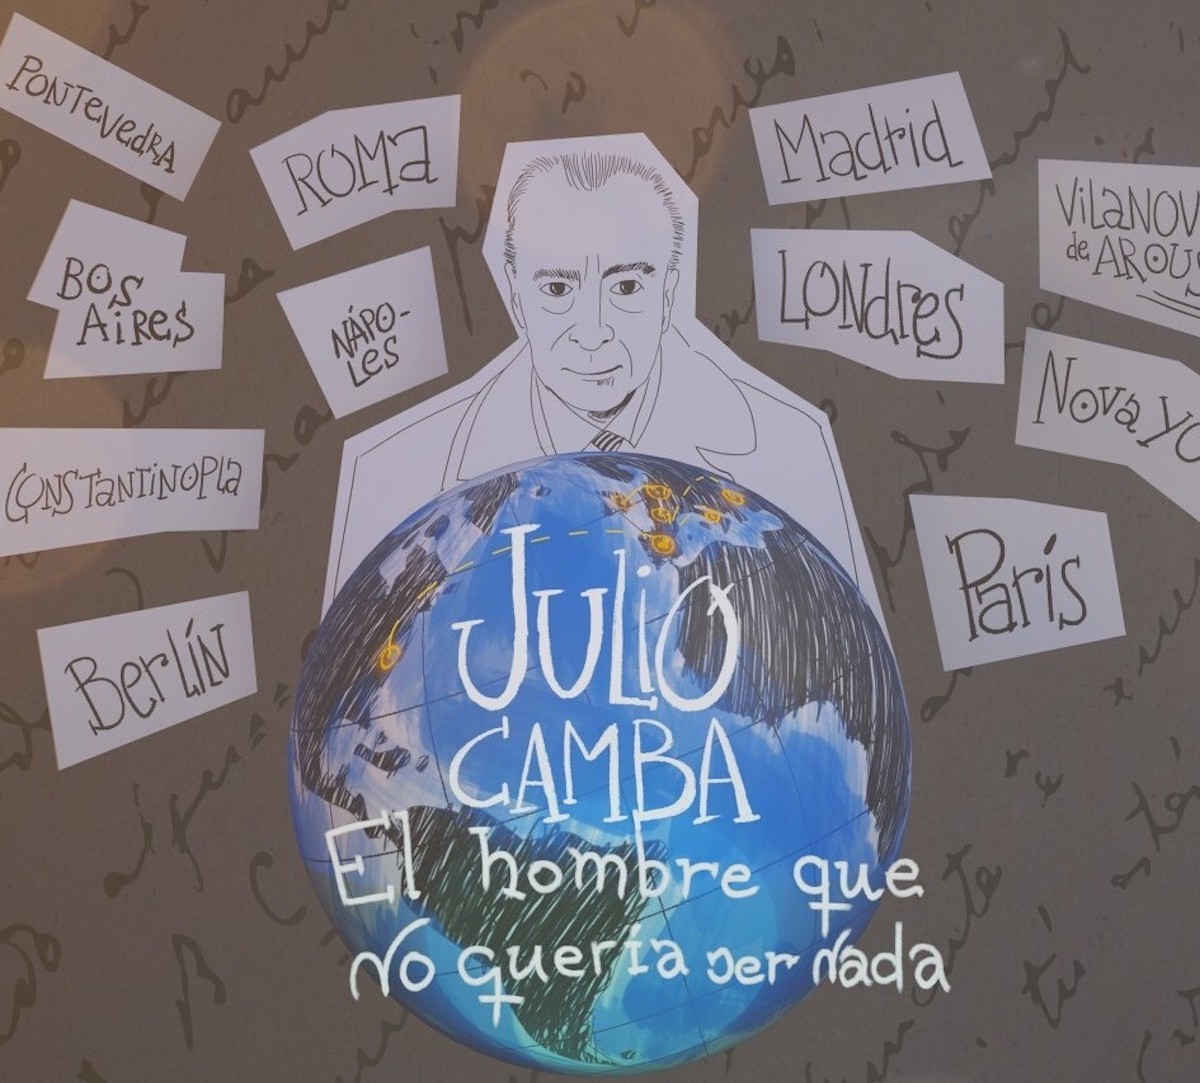 PONTEVEDRA
ROMA
Madrid
VILANOV
de AROUS
BOS
AIRES
NÁPO-
LES
LONdres
Nova YO
CONSTANTINOPLA
París
Berlín
JULIO
CAMBA
El hombre que
no quería ser nada